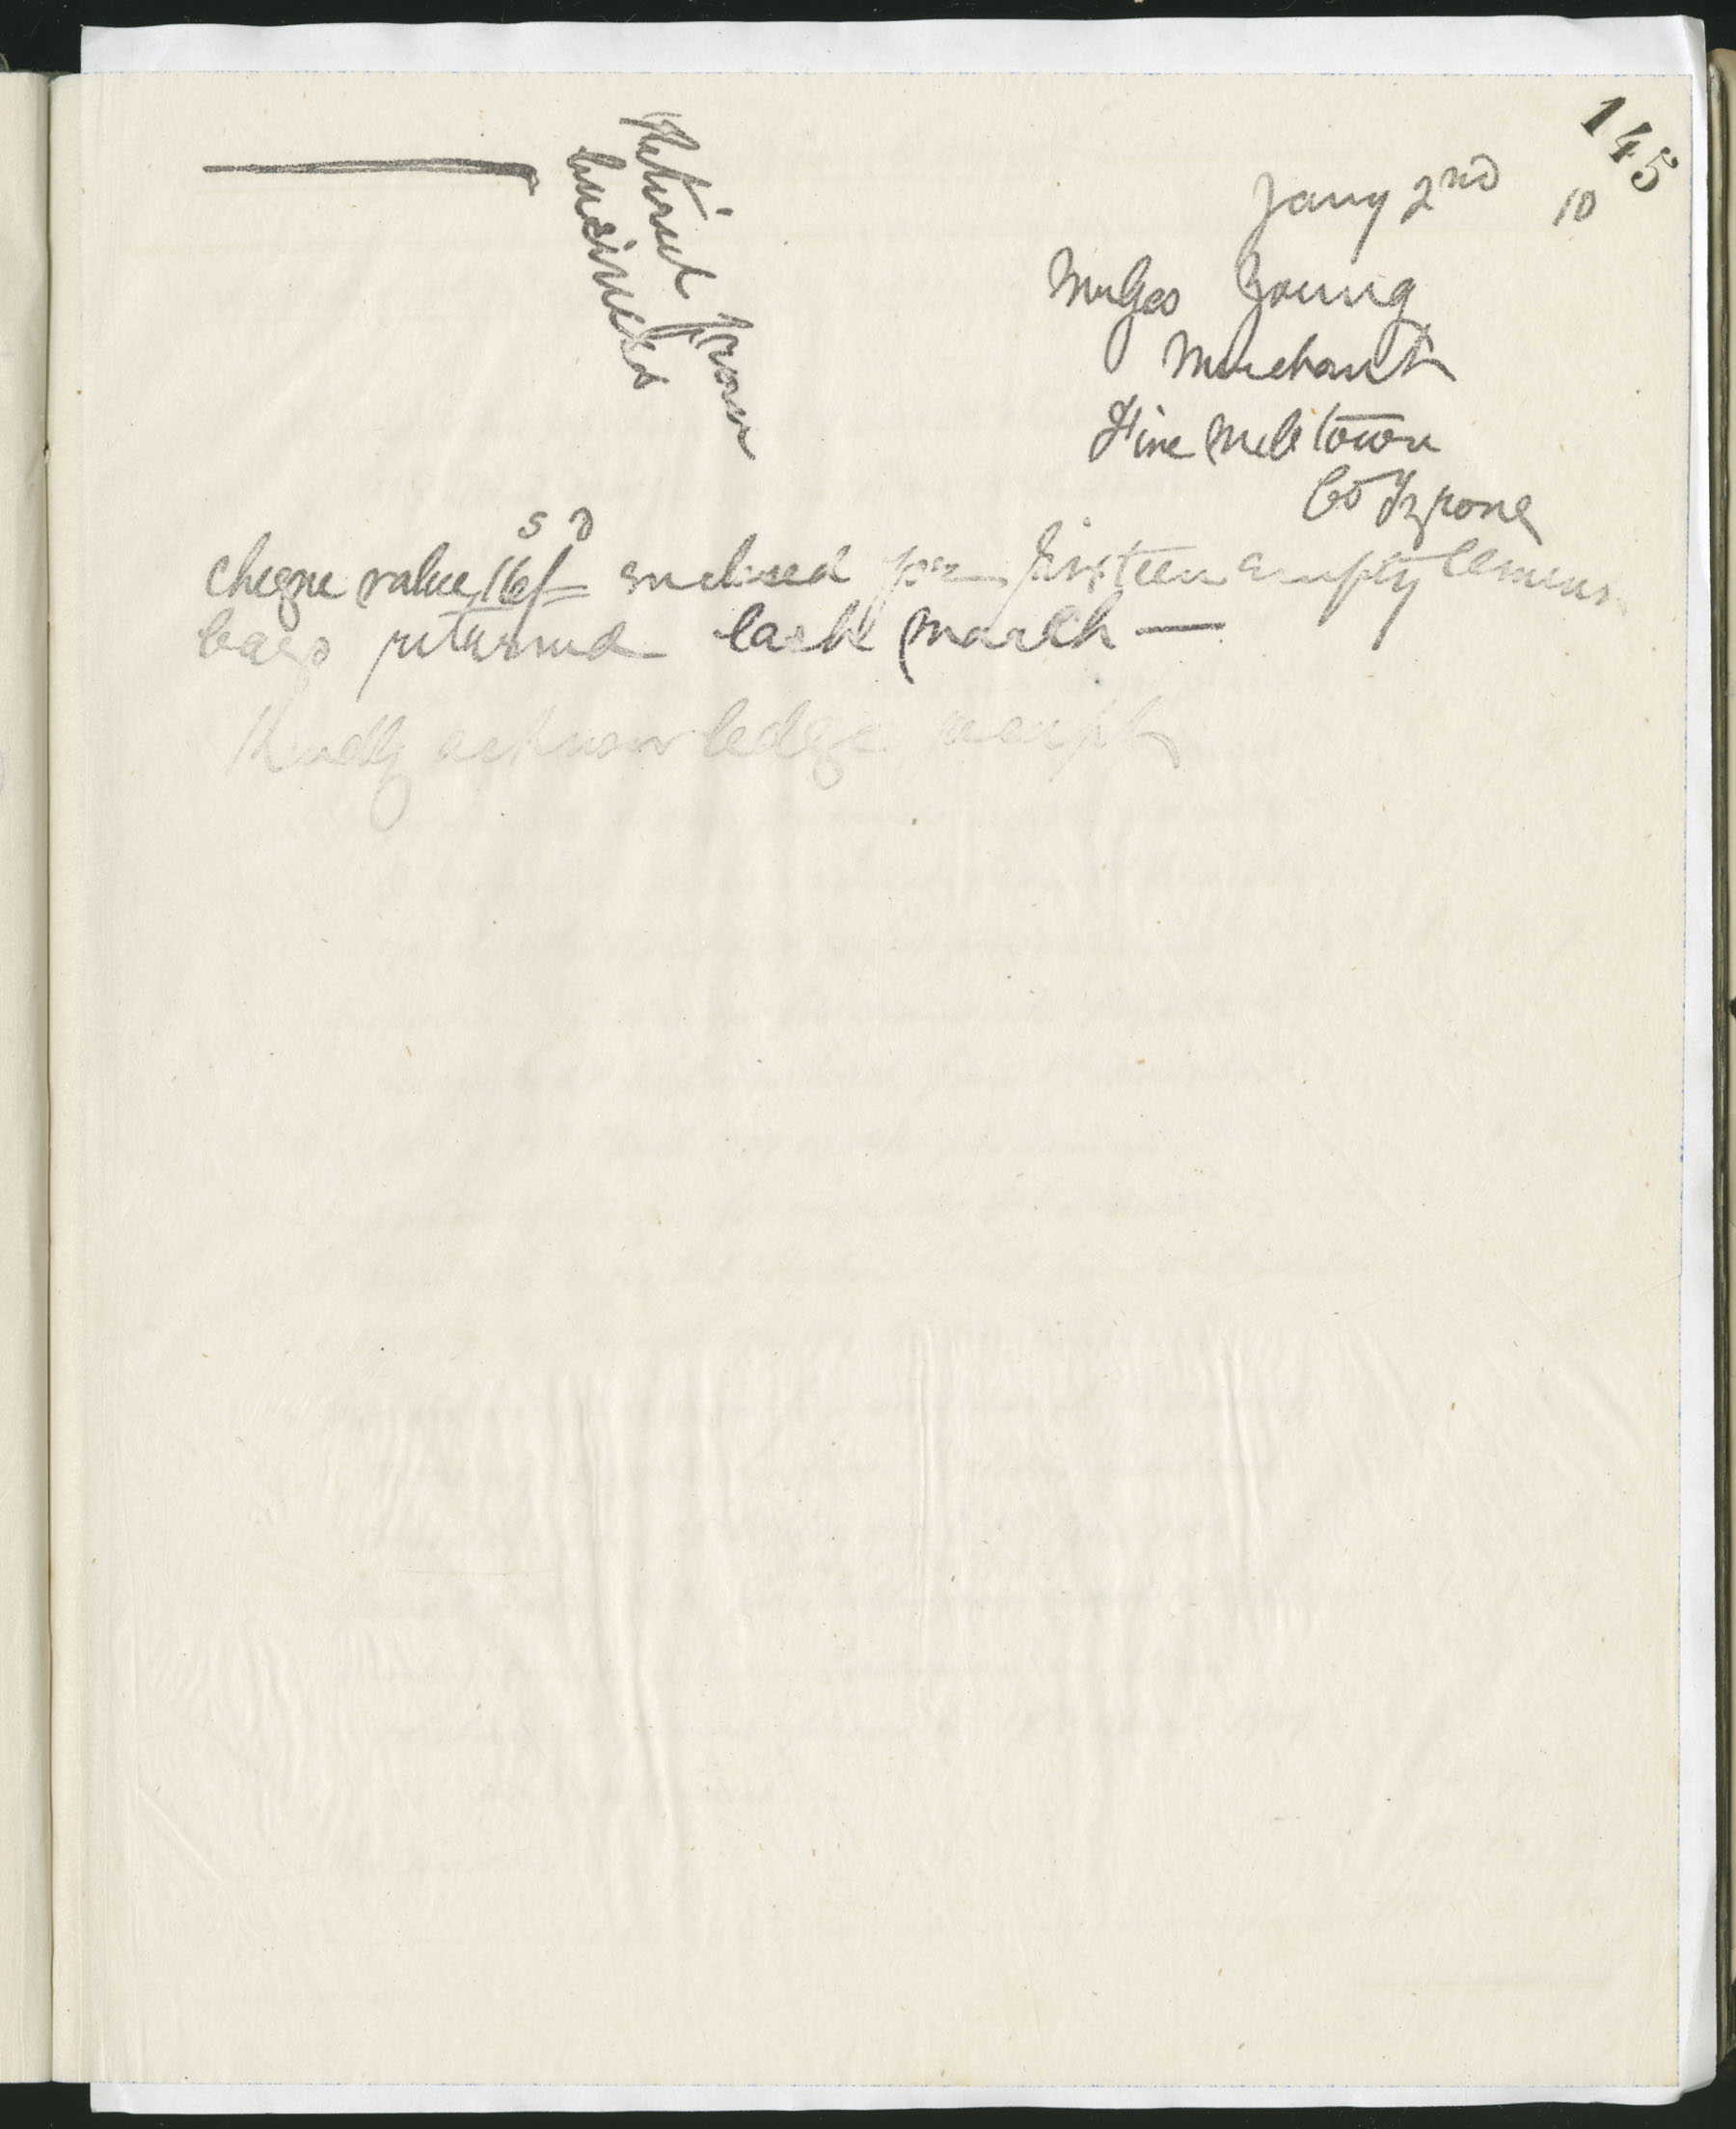 145
Jany 2nd 10
Retired from
business
Mr Geo Young
Merchant
Fivemiletown
Co Tyrone
s d
Cheque value 16/= enclosed for sixteen empty cement
bags returned last March —
Kindly acknowledge receipt